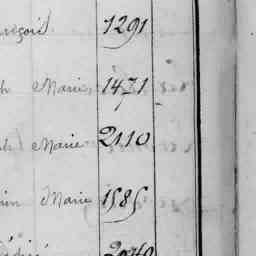 1291
h Marie 1471
h Marie 2110
in Marie 1585
2040